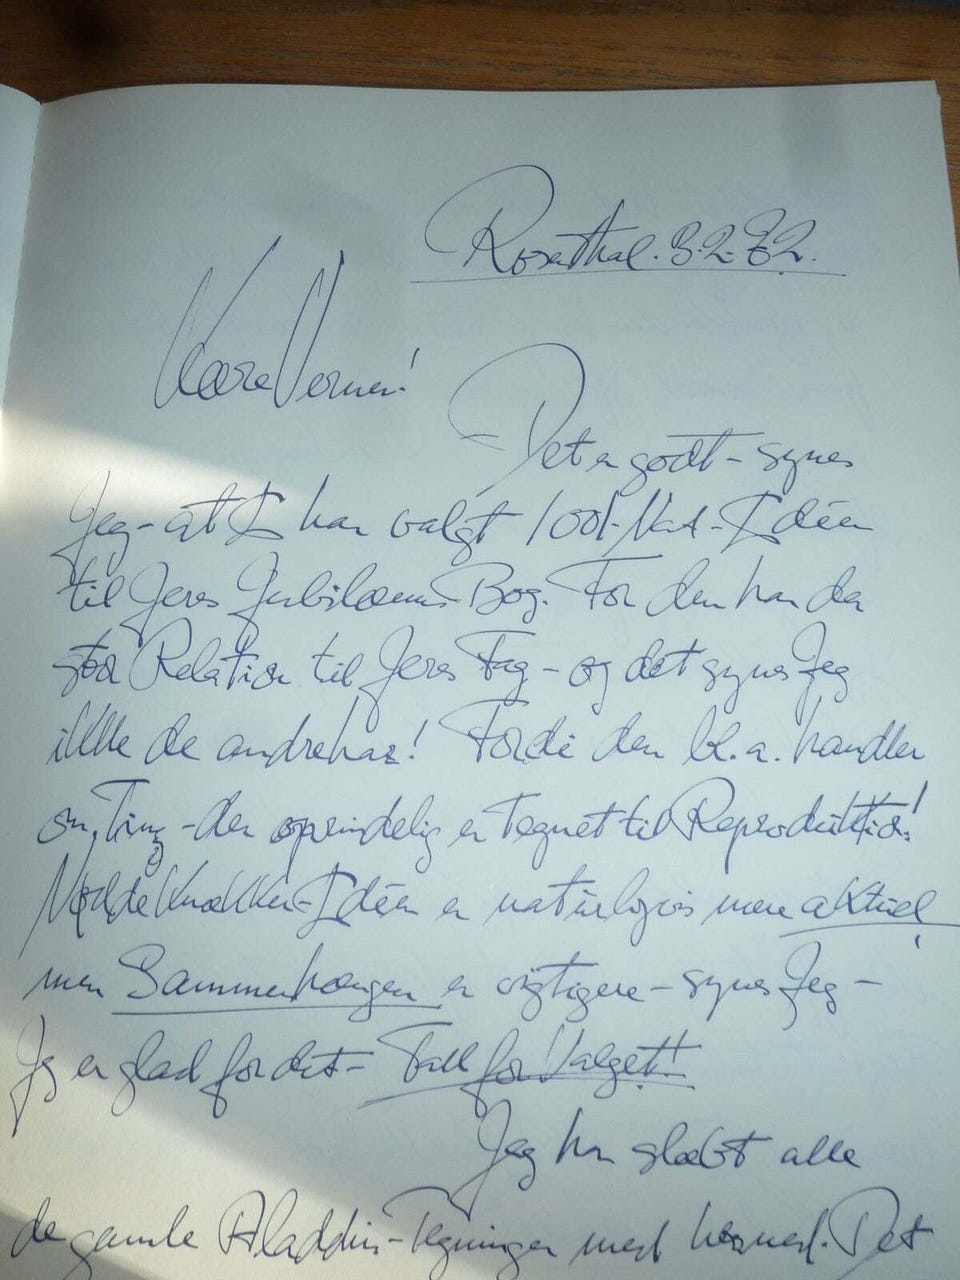 Rosenthal. 3.2.82.
Kære Verner!
Det er godt – synes
Jeg – at I har valgt 1001-Nat-Idéen
til Jeres Jubilæums-Bog. For den har da
stor Relation til Jeres Fag – og det synes Jeg
ikke de andre har! Fordi den bl.a. handler
om Ting – der oprindelig er Tegnet til Reproduktion!
Nøddeknækker-Idéen er naturligvis mere aktuel,
men Sammenhængen er vigtigere – synes Jeg –
Jeg er glad for det – Tak for Valget!!
Jeg har slæbt alle
de gamle Aladdin-Tegninger med herned. Det